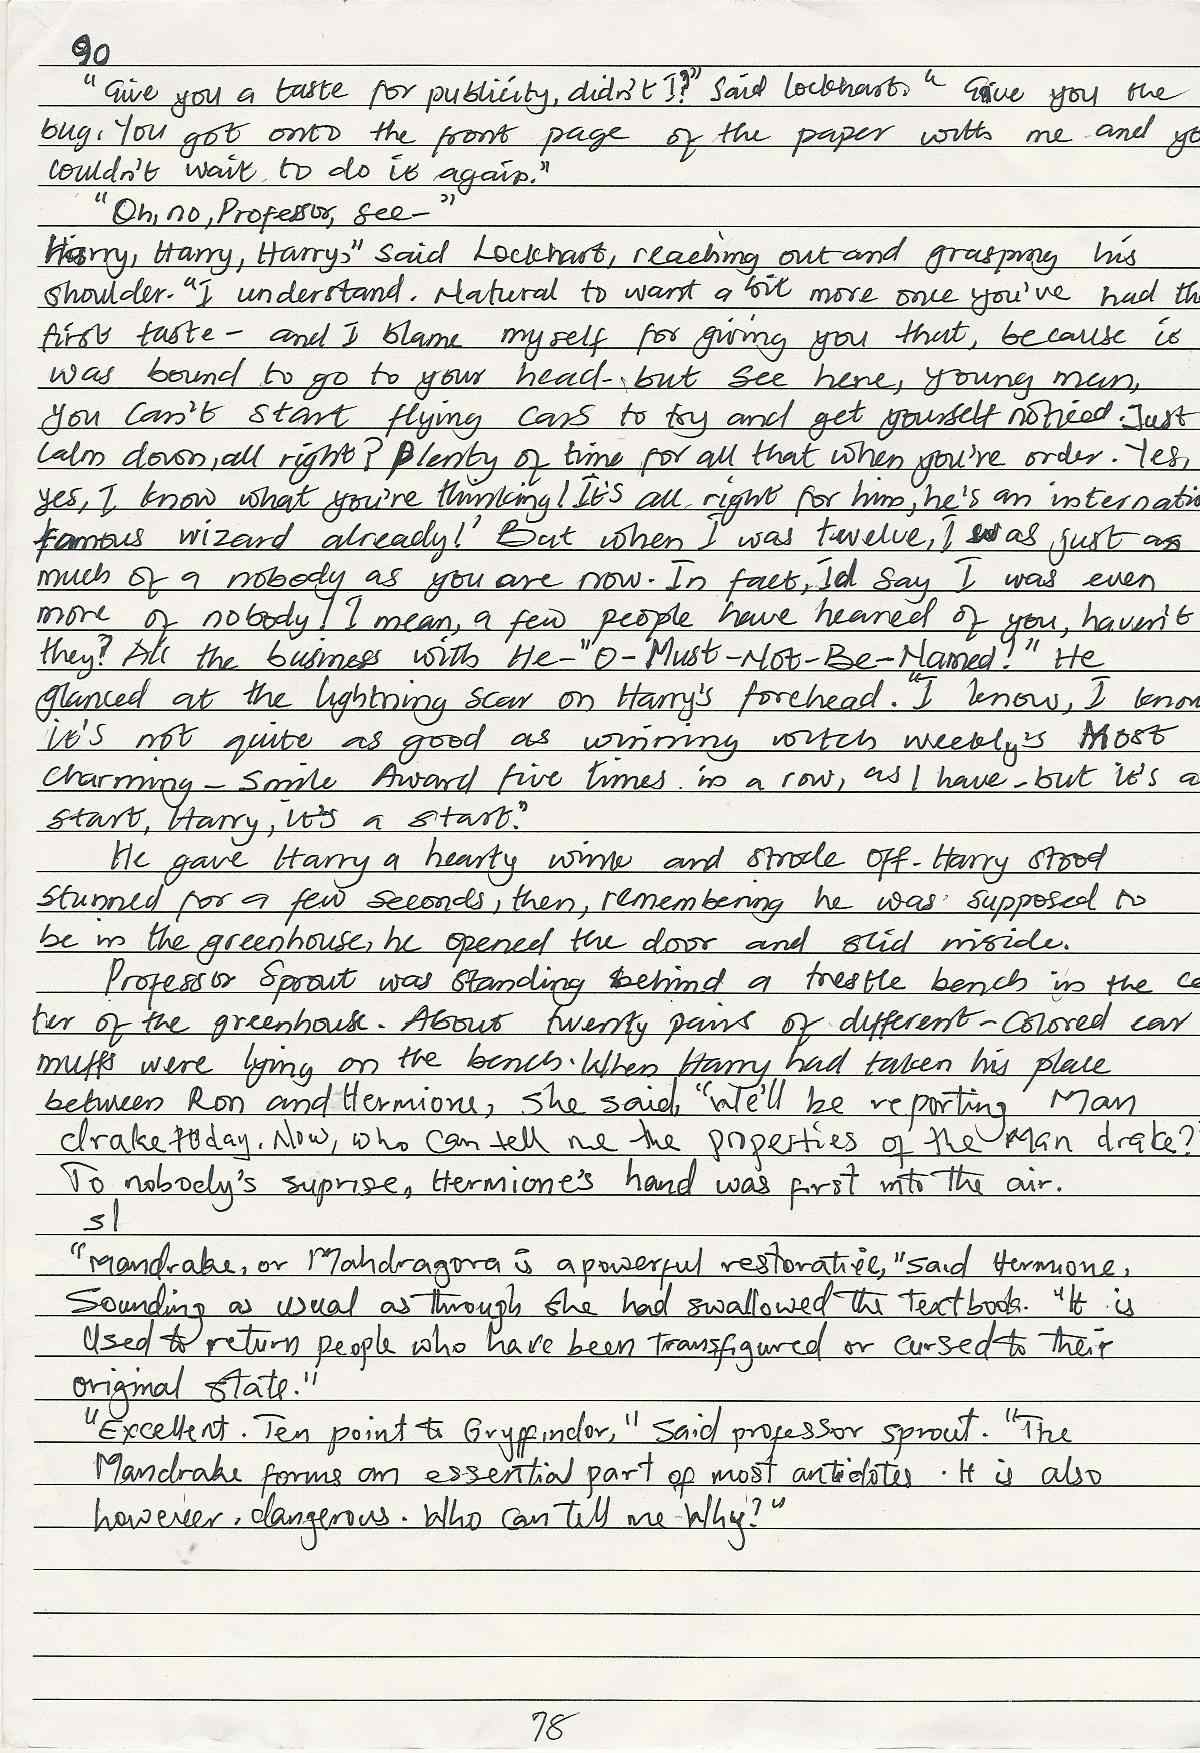 90
"Give you a taste for publicity, didn't I?" Said Lockhart. "Give you the
bug. You got onto the front page of the paper with me and yo
couldn't wait to do it again."
"Oh, no, Professor, see-"
Harry, Harry, Harry," said Lockhart, reaching out and grasping his
shoulder. "I understand. Natural to want a bit more once you've had the
first taste - and I blame myself for giving you that, because it
was bound to go to your head - but see here, young man,
you can't start flying cars to try and get yourself noticed. Just
calm down, all right? Plenty of time for all that when you're order. Yes,
yes, I know what you're thinking! It's all right for him, he's an internatio
famous wizard already!' But when I was twelve, I was just as
much of a nobody as you are now. In fact, Id say I was even
more of nobody! I mean, a few people have heared of you, haven't
they? All the business with He-"O-Must-Not-Be-Named!" He
glanced at the lightning scar on Harry's forehead. "I know, I know
it's not quite as good as winning witch weekly's Most
charming - Smile Award five times in a row, as I have - but it's a
start, Harry, it's a start."
He gave Harry a hearty wink and strode off. Harry stood
stunned for a few seconds, then, remembering he was supposed to
be in the greenhouse, he opened the door and slid inside.
Professor Sprout was standing behind a trestle bench in the ce
ter of the greenhouse. About twenty pairs of different-colored ear
muffs were lying on the bench. When Harry had taken his place
between Ron and Hermione, she said, "We'll be reporting Man
drake today. Now, who can tell me the properties of the Man drake?"
To nobody's suprise, Hermione's hand was first into the air.
sl
"Mandrake, or Mahdragora is a powerful restorative," said Hermione,
Sounding as usual as through she had swallowed the textbook. "It is
Used to return people who have been transfigured or cursed to their
original state."
"Excellent. Ten point to Gryffindor," said professor sprout. "The
Mandrake forms an essential part of most antidotes. It is also
however, dangerous. Who can tell me why?"
78